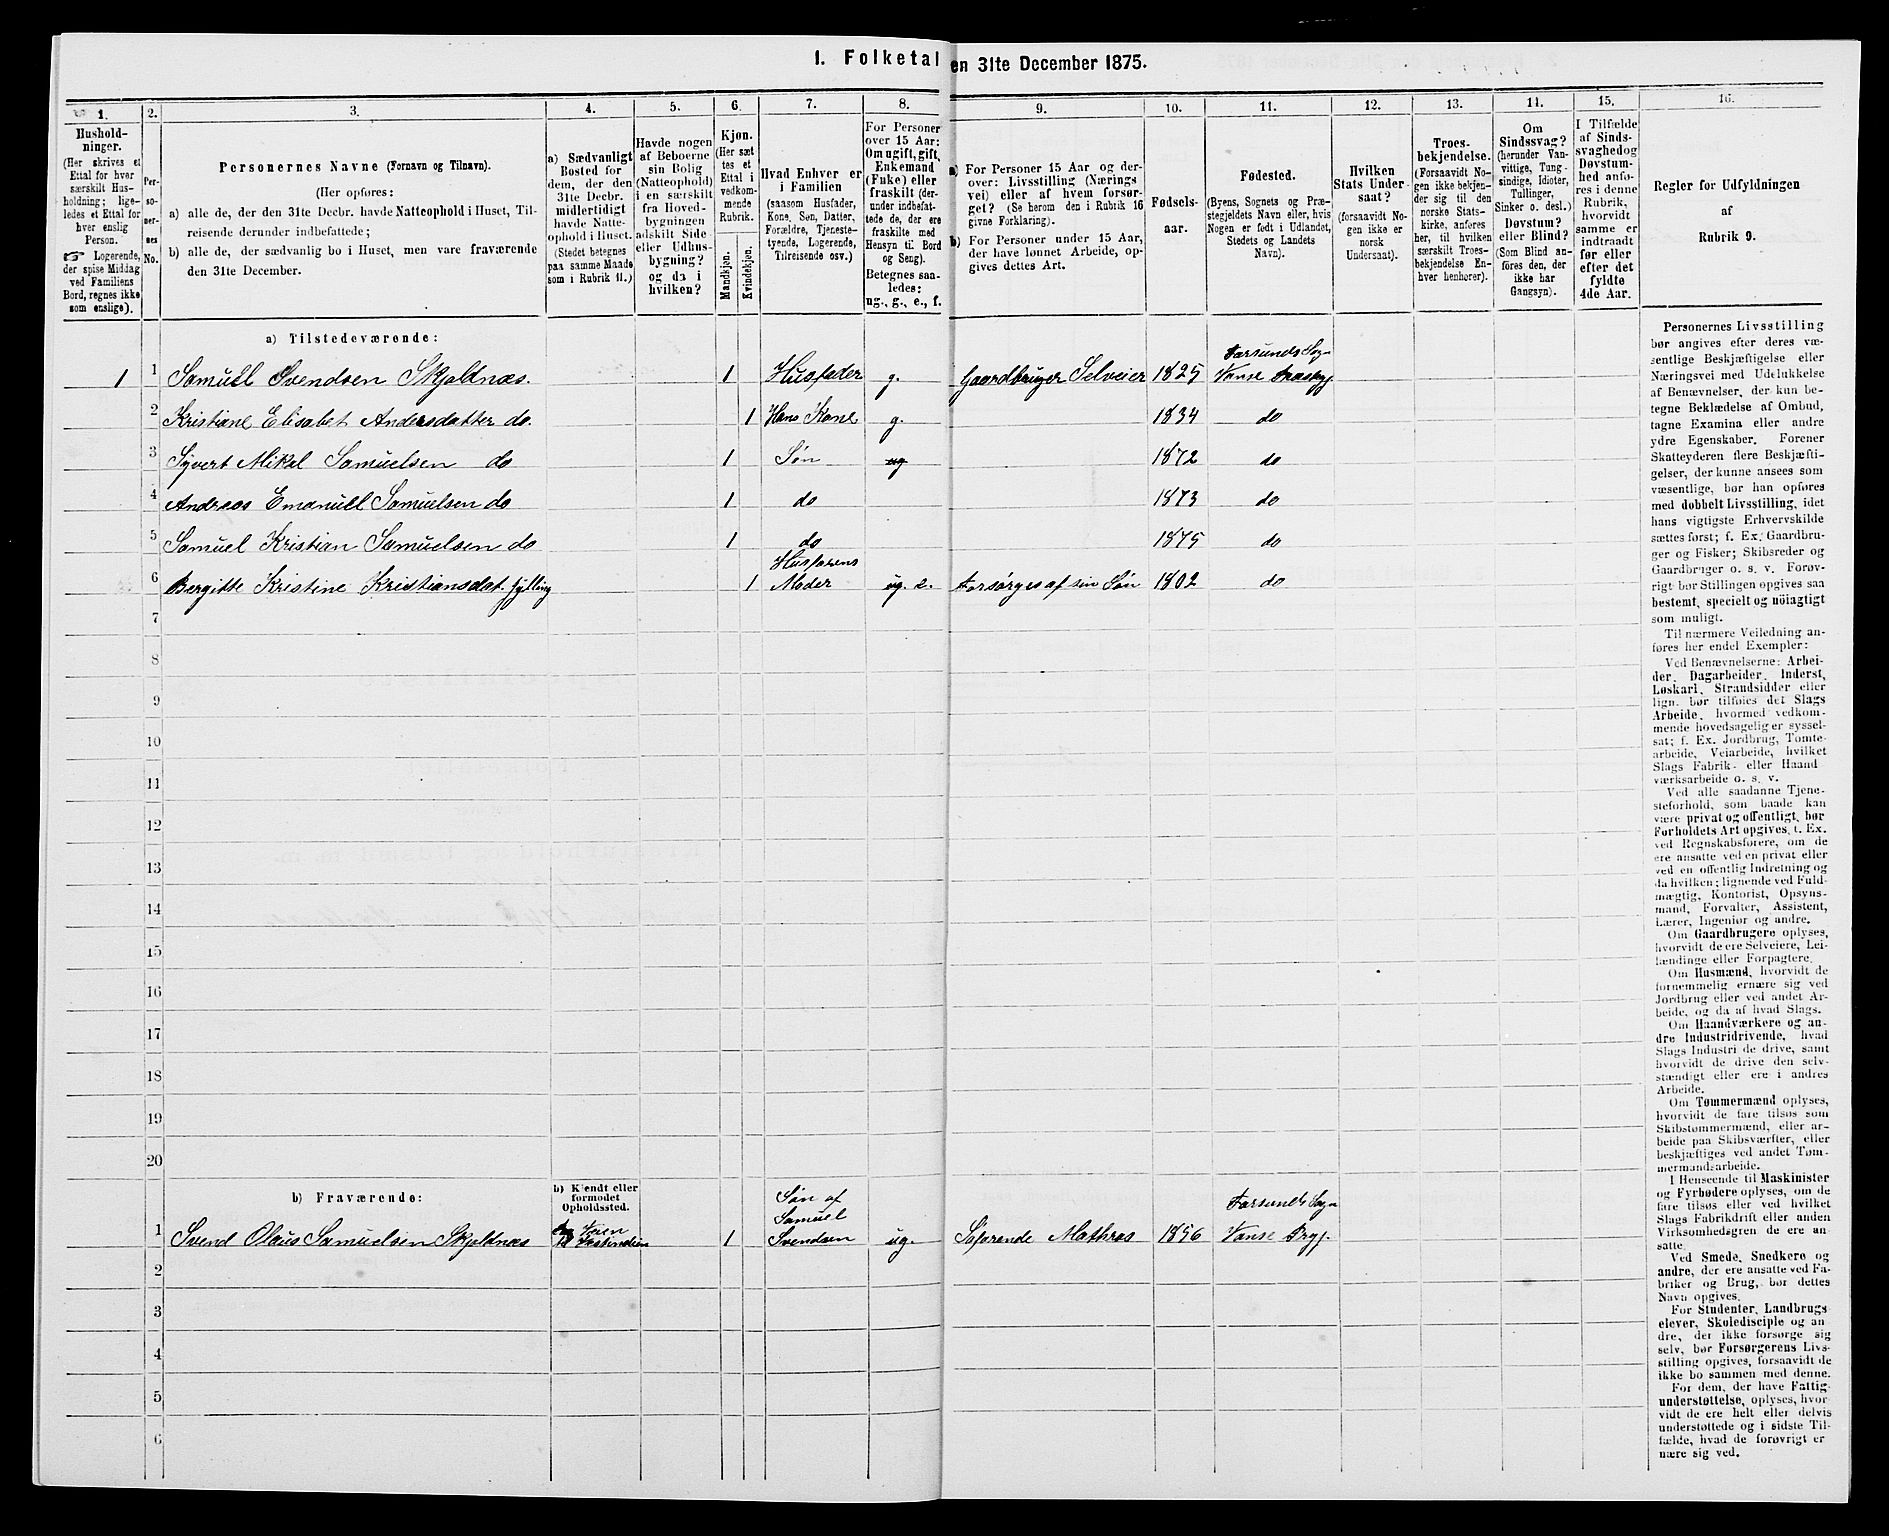 1. Folketal en 31te December 1875.
1. 2. 3. 4. 5. 6. 7. 8. 9. 10. 11. 12. 13. 14. 15. 16.
Hushold-
ninger.
(Her skrives et
Ettal for hver
særskilt Hus-
holdning; lige-
ledes et Ettal for
hver enslig
Person.
Logerende,
der spise Middag
ved Familiens
Bord, regnes ikke
som enslige).
Per-
so-
ner-
nes
No.
Personernes Navne (Fornavn og Tilnavn).
(Her opføres:
a) alle de, der den 31te Decbr. havde Natteophold i Huset, Til-
reisende derunder indbefattede;
b) alle de, der sædvanlig bo i Huset, men vare fraværende
den 31te December.
a) Sædvanligt
Bosted for
dem, der den
31te Decbr.
midlertidigt
havde Natte-
ophold i Huset.
(Stedet betegnes
paa samme Maade
som i Rubrik 11.)
Havde nogen
af Beboerne
sin Bolig
(Natteophold)
i en særskilt
fra Hoved-
bygningen
adskilt Side-
eller Udhus-
bygning?
og da i
hvilken?
Kjøn.
(Her sæt-
tes et
Ettal i
vedkom-
mende
Rubrik.
Mandkjøn.
Kvindekjøn.
Hvad Enhver er
i Familien
(saasom Husfader,
Kone, Søn, Datter,
Forældre, Tjeneste-
tyende, Logerende,
Tilreisende osv.)
For Personer
over 15 Aar:
Om ugift, gift,
Enkemand
(Fuke) eller
fraskilt (der-
under indbefat-
tede de, der ere
fraskilte med
Hensyn til Bord
og Seng).
Betegnes saa-
ledes:
ug., g., e., f.
a) For Personer 15 Aar og der-
over: Livsstilling (Nærings-
vei) eller af hvem forsør-
get? (Se herom den i Rubrik 16
givne Forklaring).
b) For Personer under 15 Aar,
der have lønnet Arbeide, op-
gives dettes Art.
Fødsels-
aar.
Fødested.
(Byens, Sognets og Præ-
stegjeldets Navn eller, hvis
Nogen er født i Udlandet,
Stedets og Landets
Navn).
Hvilken
Stats Under-
saat?
(forsaavidt No-
gen ikke er
norsk
Undersaat).
Troes-
bekjendelse.
(Forsaavidt No-
gen ikke bekjen-
der sig til den
norske Stats-
kirke, anføres
her, til hvilken
særskilt Troes-
bekjendelse En-
hver henhører).
Om
Sindssvag?
(herunder Van-
vittige, Tung-
sindige, Idioter,
Tullinger,
Sinker o. desl.)
Døvstum?
eller Blind?
(Som Blind an-
føres den, der
ikke har
Gangsyn).
I Tilfælde
af Sinds-
svaghed og
Døvstum-
hed anfø-
res i denne
Rubrik,
hvorvidt
samme er
indtraadt
før eller
efter det
fyldte
4de Aar.
Regler for Udfyldningen
af
Rubrik 9.
a) Tilstedeværende:
Farsunds Sogn
1 1 Samuel Svendsen Skjoldnæs. 1 Husfader g. Gaardbruger Selveier 1825 Vanse
2 Kristiane Elisabet Andersdatter do. 1 Hans Kone g. 1834 do
3 Syvert Mikal Samuelsen do 1 Søn ug 1872 do
4 Andreas Emanuel Samuelsen do 1 do 1873 do
5 Samuel Kristian Samuelsen do 1 do 1875 do
Husfarens
6 Bergitte Kristine Kristiansdat. Jylling 1 Moder ug. e. Forsørges af sin Søn 1802 do
7
8
9
10
11
12
13
14
15
16
17
18
19
20
b) Fraværende:
b) Kjendt eller
formodet
Opholdssted.
Søn af
Samuel
Svendsen
Farsunds Sogn
1 Svend Olaus Samuelsen Skjoldnæs Veien Vestindien 1 ug. Søfarende Mathros 1856 Vanse Prgj.
2
3
4
5
6
Personernes Livsstilling
bør angives efter deres væ-
sentlige Beskjæftigelse eller
Næringsvei med Udelukkelse
af Benævnelser, der kun be-
tegne Beklædelse af Ombud,
tagne Examina eller andre
ydre Egenskaber. Forener
Skatteyderen flere Beskjæfti-
gelser, der kunne ansees som
væsentlige, bør han opføres
med dobbelt Livsstilling, idet
hans vigtigste Erhvervskilde
sættes først; f. Ex. Gaardbru-
ger og Fisker; Skibsreder og
Gaardbruger o. s. v. Forøv-
rigt bør Stillingen opgives saa
bestemt, specielt og nöiagtigt
som muligt.
Til nærmere Veiledning an-
føres her endel Exempler:
Ved Benævnelserne: Arbei-
der, Dagarbeider, Inderst,
Løskarl, Strandsidder eller
lign. bør tilføies det Slags
Arbeide, hvormed vedkom-
mende hovedsagelig er syssel-
sat; f. Ex. Jordbrug, Tomte-
arbeide, Veiarbeide, hvilket
Slags Fabrik- eller Haand-
værksarbeide o. s. v.
Ved alle saadanne Tjene-
steforhold, som baade kan
være privat og offentligt, bør
Forholdets Art opgives, t. Ex.
ved Regnskabsførere, om de
ere ansatte ved en privat eller
ved en offentlig Indretning og
da hvilken; lignende ved Fuld-
mægtig, Kontorist, Opsyns-
mand, Forvalter, Assistent,
Lærer, Ingeniør og andre.
Om Gaardbrugere oplyses,
hvorvidt de ere Selveiere, Lei-
lændinge eller Forpagtere.
Om Husmænd, hvorvidt de
fornemmelig ernære sig ved
Jordbrug eller ved andet Ar-
beide, og da af hvad Slags.
Om Haandværkere og an-
dre Industridrivende, hvad
Slags Industri de drive, samt
hvorvidt de drive den selv-
stændigt eller ere i andres
Arbeide.
Om Tømmermænd oplyses,
hvorvidt de fare tilsøs som
Skibstømmermænd, eller ar-
beide paa Skibsværfter, eller
beskjæftiges ved andet Tøm-
mermandsarbeide.
I Henseende til Maskinister
og Fyrbødere oplyses, om de
fare tilsøs eller ved hvilket
Slags Fabrikdrift eller anden
Virksomhedsgren de ere an-
satte.
Ved Smede, Snedkere og
andre, der ere ansatte ved Fa-
briker og Brug, bør dettes
Navn opgives.
For Studenter, Landbrugs-
elever, Skoledisciple og an-
dre, der ikke forsørge sig
selv, bør Forsørgerens Livs-
stilling opgives, forsaavidt de
ikke bo sammen med denne.
For dem, der have Fattig-
understøttelse, oplyses, hvor-
vidt de ere helt eller delvis
understøttede og i sidste Til-
fælde, hvad de forøvrigt er-
nære sig ved.